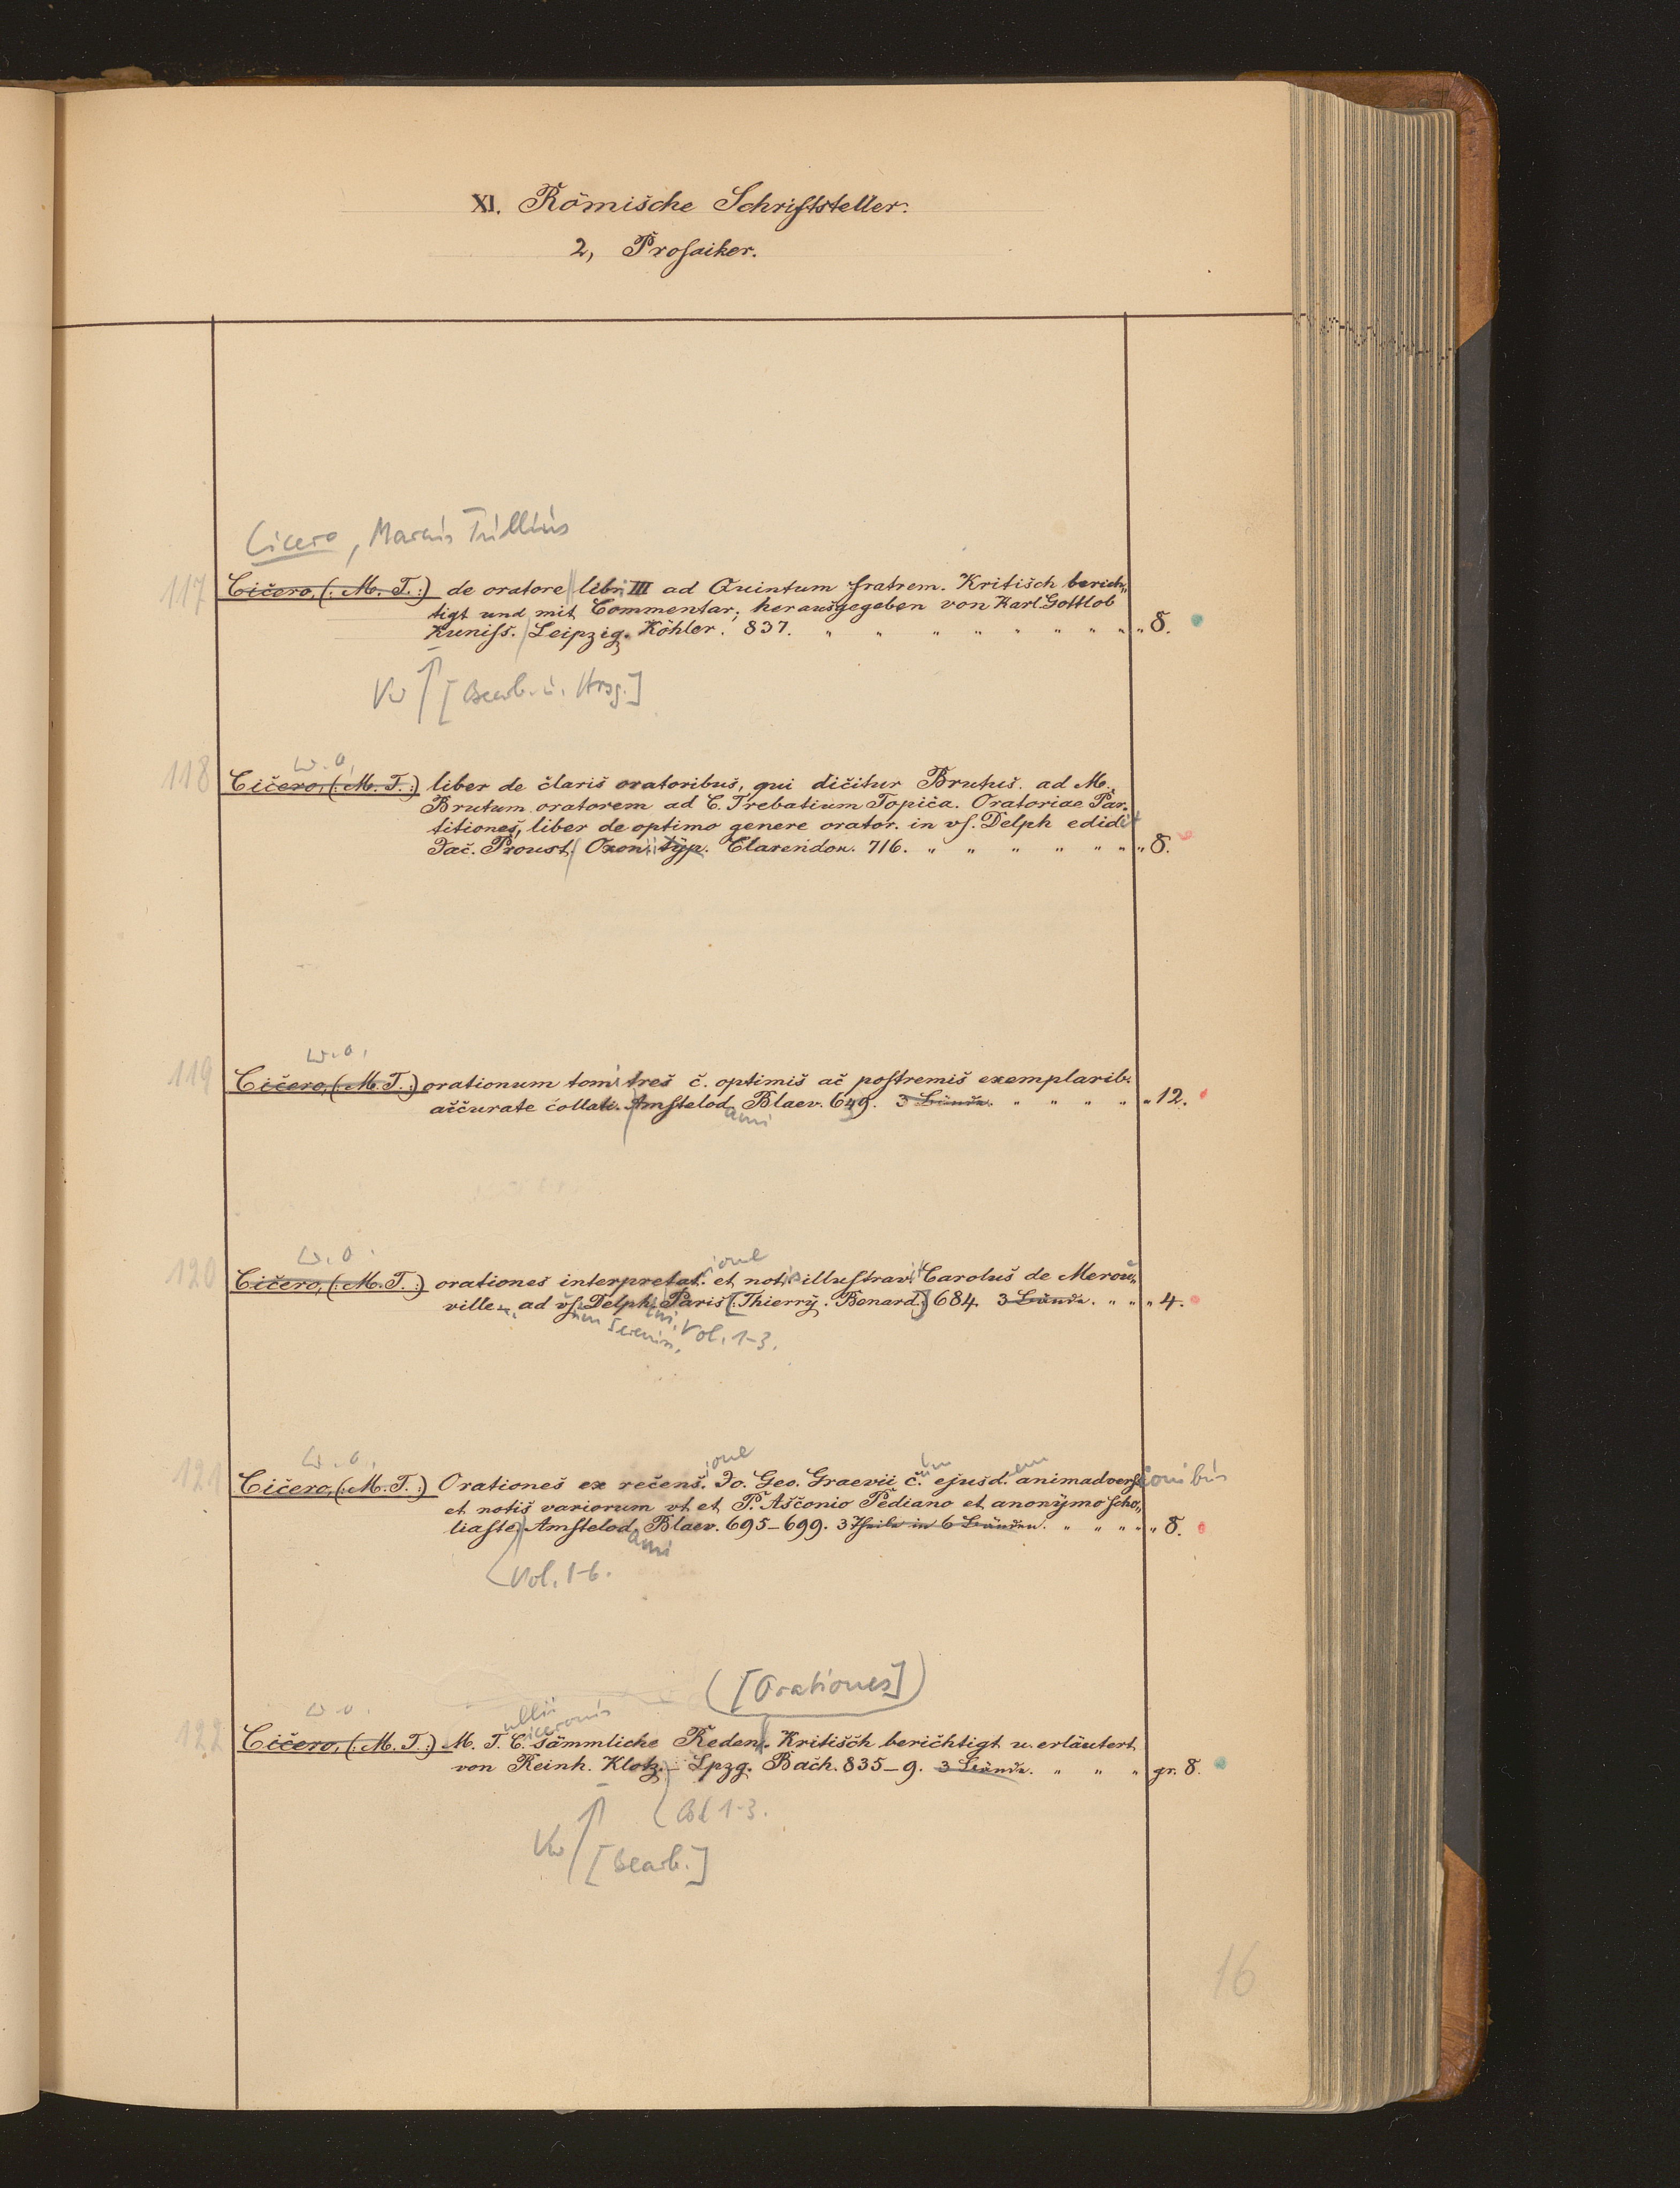 XI. Römische Schriftsteller.
2, Prosaiker.
Cicero, Marcus Tullius
117 Cicero, (: M. T. :) de oratore libri III ad Quintum fratrem. Kritisch berich„
tigt und mit Commentar, herausgegeben von Karl Gottlob
Kuniss. Leipzig. Köhler. 837. „ „ „ „ „ „ „ „ „ 8.
Vw [Bearb. u. Hrsg.]
w. o.
118 Cicero, (: M. T. :) liber de claris oratoribus, qui dicitur Brutus. ad M.
Brutum oratorem ad C. Trebatium Topica. Oratoriae Par„
titiones, liber de optimo genere orator. in us. Delph edidit
Jac. Proust. Oxonii typ. Clarendon. 716. „ „ „ „ „ „ „ 8.
w. o.
119 Cicero, (: M. T. :) orationum tomi tres c. optimis ac postremis exemplarib.
accurate collati. Amstelod. Blaev. 649. 3 Bände. „ „ „ „ „ 12.
ami
w. o.
ione
120 Cicero, (: M. T. :) orationes interpretat. et notis illustravit Carolus de Merou„
ville. ad us. Delph. Paris [: Thierry. Benard. :] 684. 3 Bände. „ „ „ 4.
um Sereniss. ini, Vol. 1-3.
w. o.
ione um em
121 Cicero, (: M. T. :) Orationes ex recens. Jo. Geo. Graevii c. ejusd. animadversionibus
et notis variorum ut et P. Asconio Pediano et anonymo scho„
liaste. Amstelod. Blaev. 695-699. 3 Theile in 6 Bänden. „ „ „ „ „ 8.
ami
Vol. 1-6.
([Orationes])
w. o. ullii iceronis
122 Cicero, (: M. T. :) M. T. C. sämmliche Reden. Kritisch berichtigt u. erläutert
von Reinh. Klotz. - Lpzg. Bach. 835-9. 3 Bände. „ „ „ gr. 8.
Bd 1-3.
Vw [Bearb.]
16